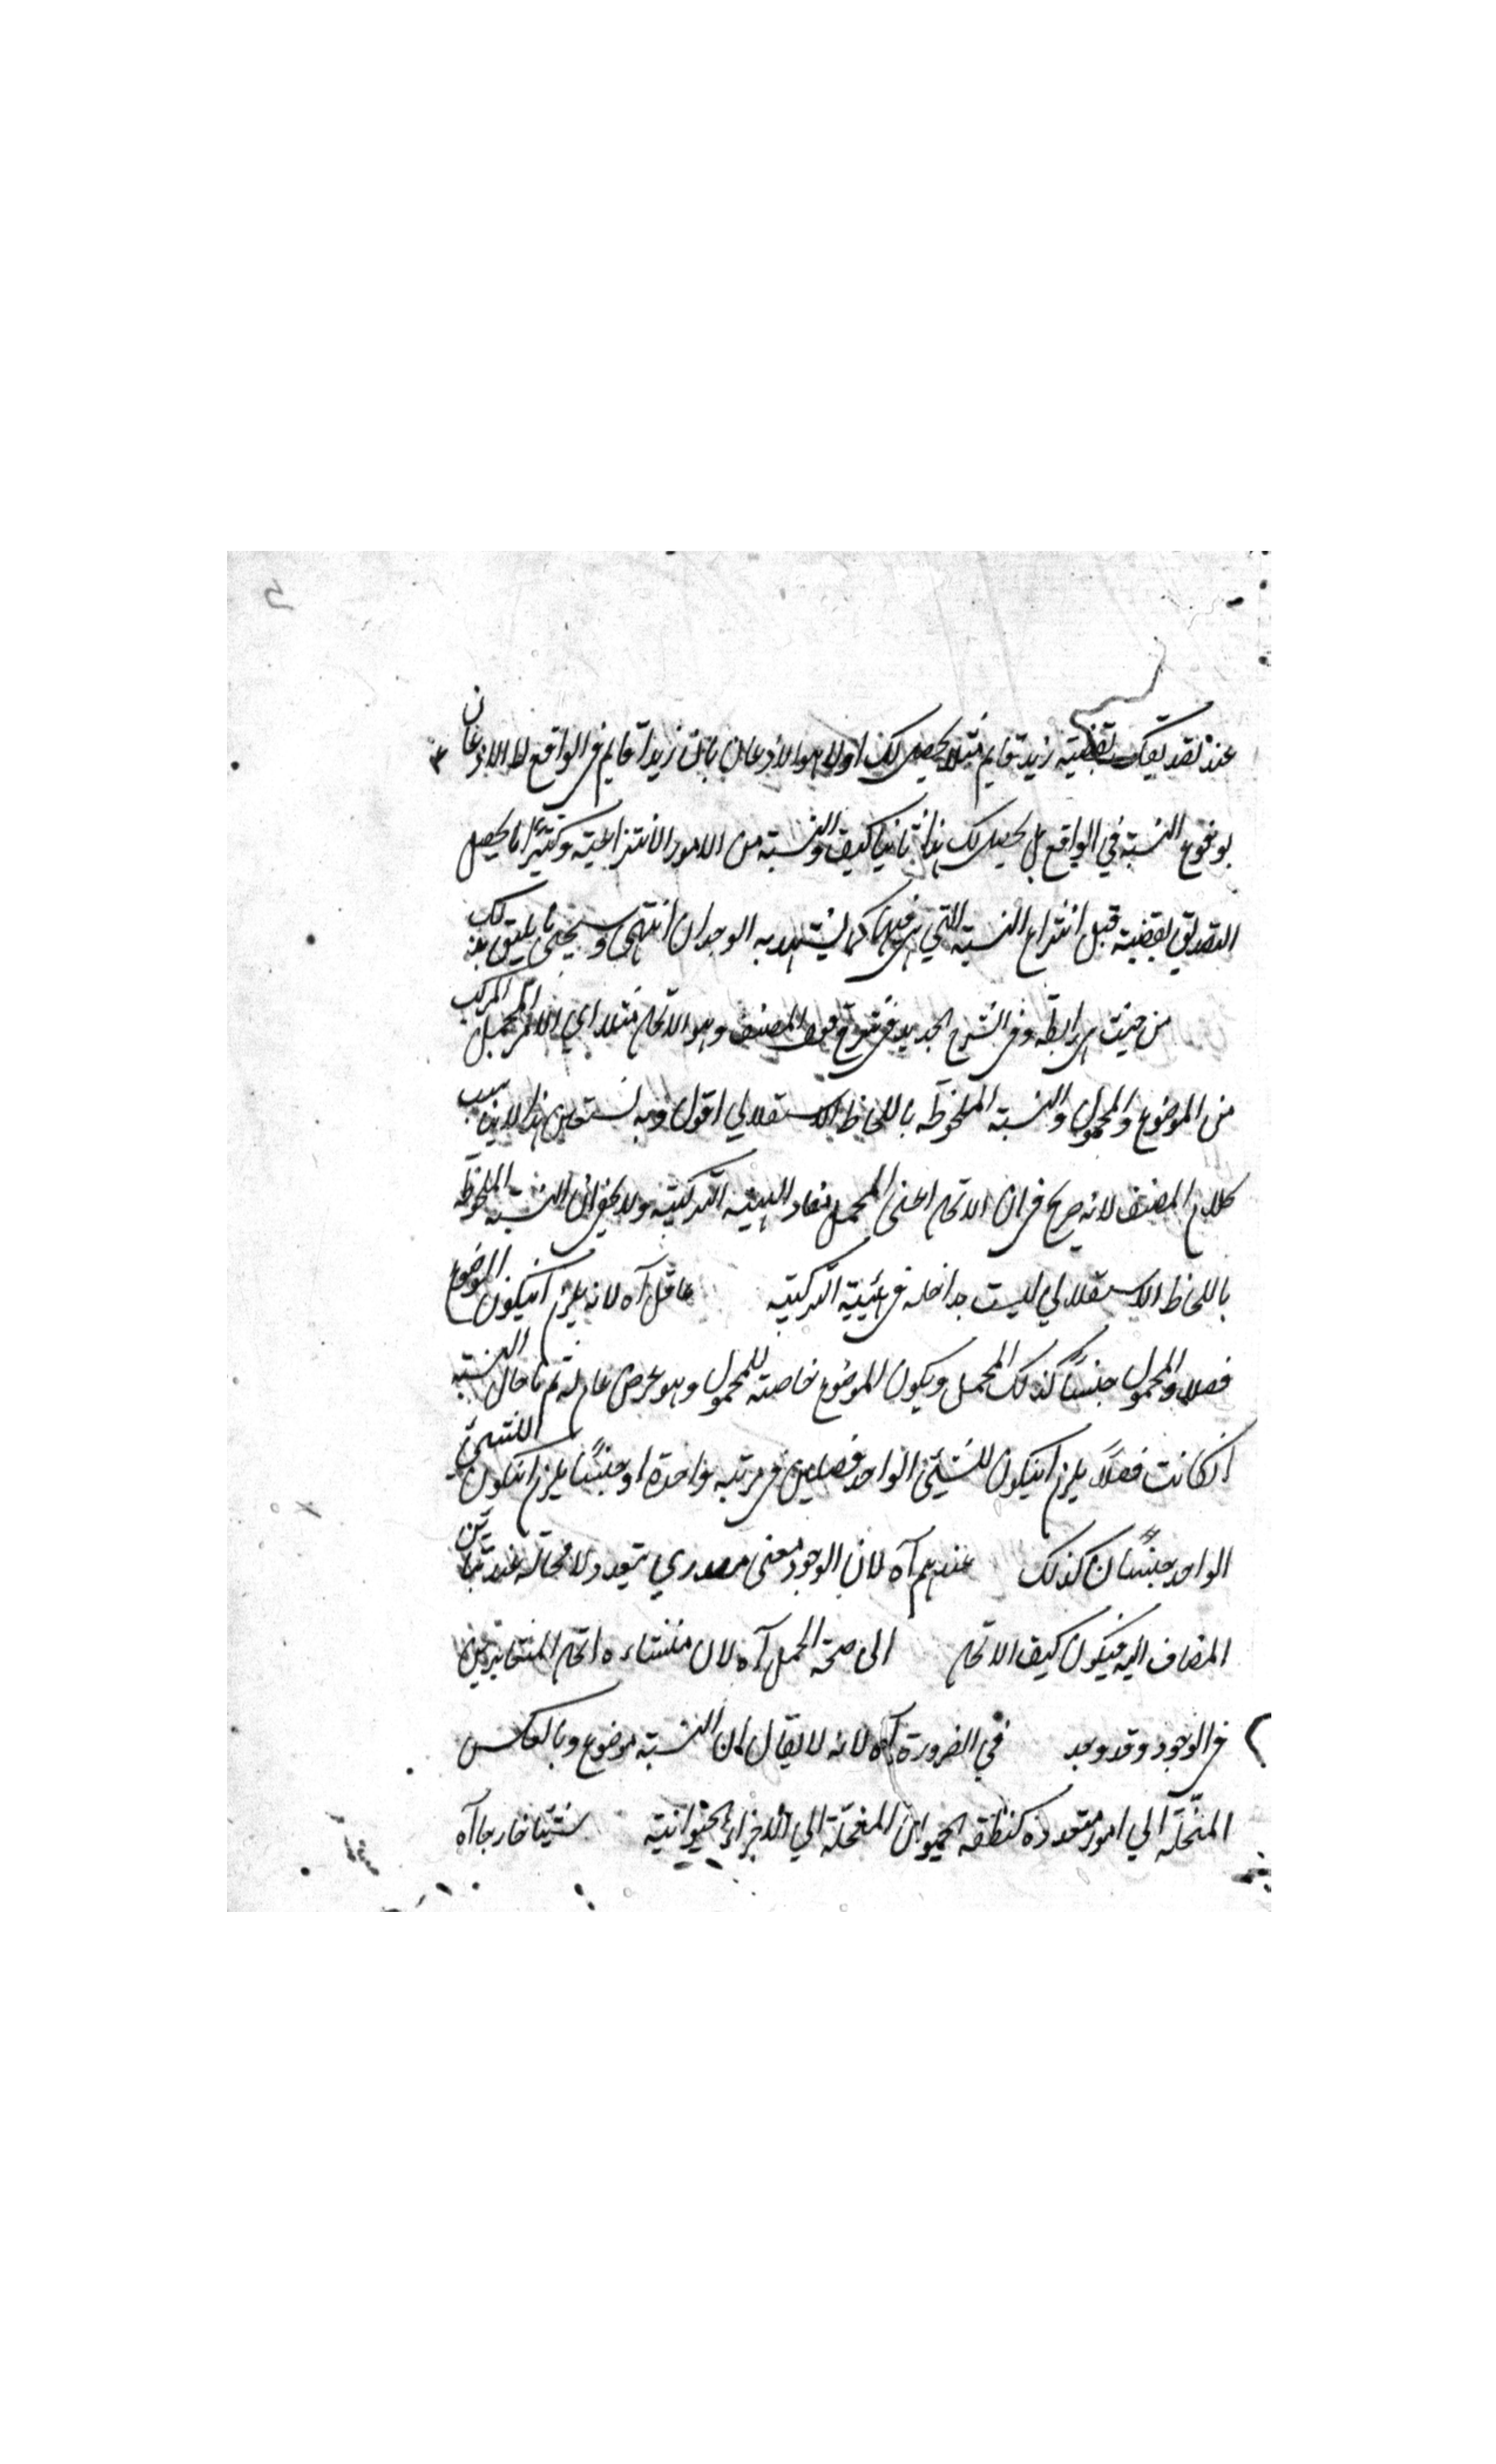 عند تصديقك بقضية زيد قايم مثلا يحصل لك اولا هو الاذعان بان زيدا قايم فى الواقع لا الاذعان
بوقوع النسبة في الواقع بل يحصل لك هذا ثانيا كيف والنسبة من الامور الانتزاعية وكثيرا ما يحصل
التصديق بقضية قبل انتزاع النسبة التي هى فيها كما يشهد به الوجدان انتهى وسيجئ ما يليق بذلك
من حيث هى رابطة وفى الشرح الجديد فى شرح قول المصنف وهو الاتحاد مثلا اي الامر المجمل المركب
من الموضوع والمحمول والنسبة الملحوظة باللحاظ الاستقلالي اقول وبه نستعين هذا لا يناسب
كلام المصنف لانه صريح فى ان الاتحاد اعنى المجمل مفاد الهيئة التركيبية ولا يخفى ان النسبة الملحوظة
باللحاظ الاستقلالي ليست بداخلة فى الهيئية التركيبية عاقل آه لانه يلزم انيكون الموضوع
فصلا والمحمول جنسًا كذلك المجمل ويكون الموضوع خاصة للمحمول وهو عرض عام له ثم ما حال النسبة
انكانت فصلاً يلزم انيكون للشيئ الواحد فصلين فى مرتبة واحدة او جنسًا يلزم انيكون للشيئ
الواحد جنسًان كذلك عندهم آه لان الوجود معنى مصدري يتعدد لا محالة عند تباين
المضاف اليه فيكون كيف الاتحاد الى صحة الحمل آه لان منشاءه اتحاد المتغايرين
فى الوجود وقد وجد في الضرورة آه لانه لا يقال ان النسبة موضوع وبالعكس
المنحلة الي امور متعددة كنطفة الحيوان المنحلة الي الاجزاء الحيوانية شيئا خارجا آه